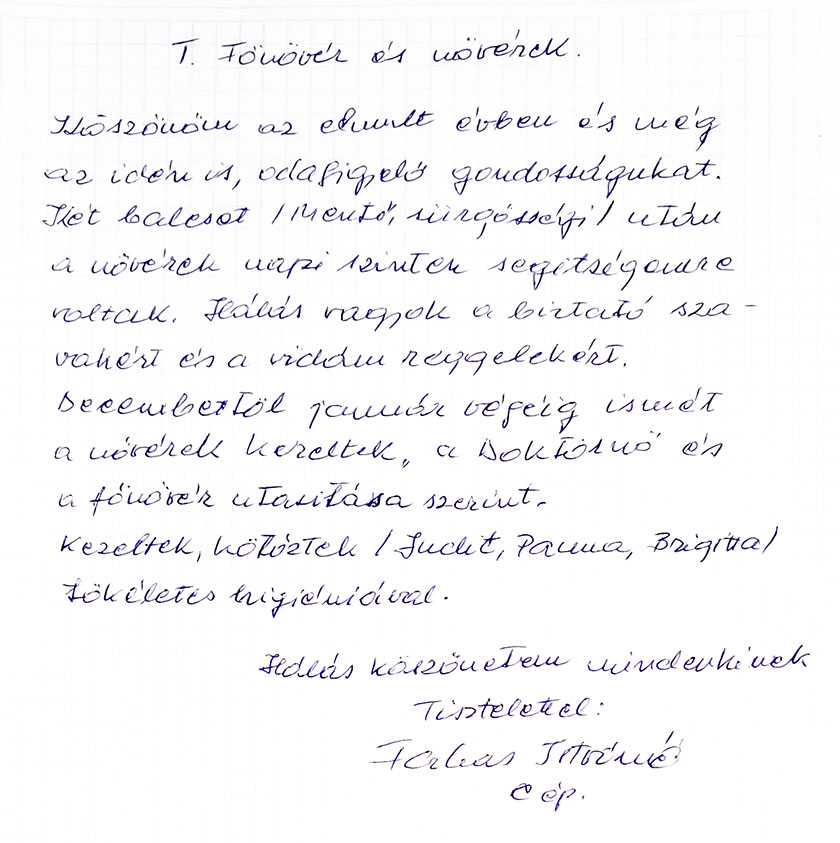 T. Főnővér és nővérek.
Köszönöm az elmult évben és még
az idén is, odafigyelő gondosságukat.
Két balesot /Mentő, sürgősségi/ után
a nővérek napi szinten segítségemre
voltak. Hálás vagyok a biztató sza-
vakért és a vidám reggelekért.
Decembertől január végéig ismét
a nővérek kezeltek, a Doktornő és
a főnővér utasitása szerint.
Kezeltek, kötöztek /Judit, Panna, Brigitta/
tökéletes higiéniával.
Hálás köszönetem mindenkinek
Tisztelettel:
Farkas Istvánné
C ép.